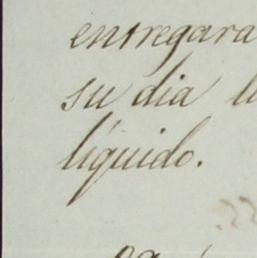 entregara
su dia
líquido.